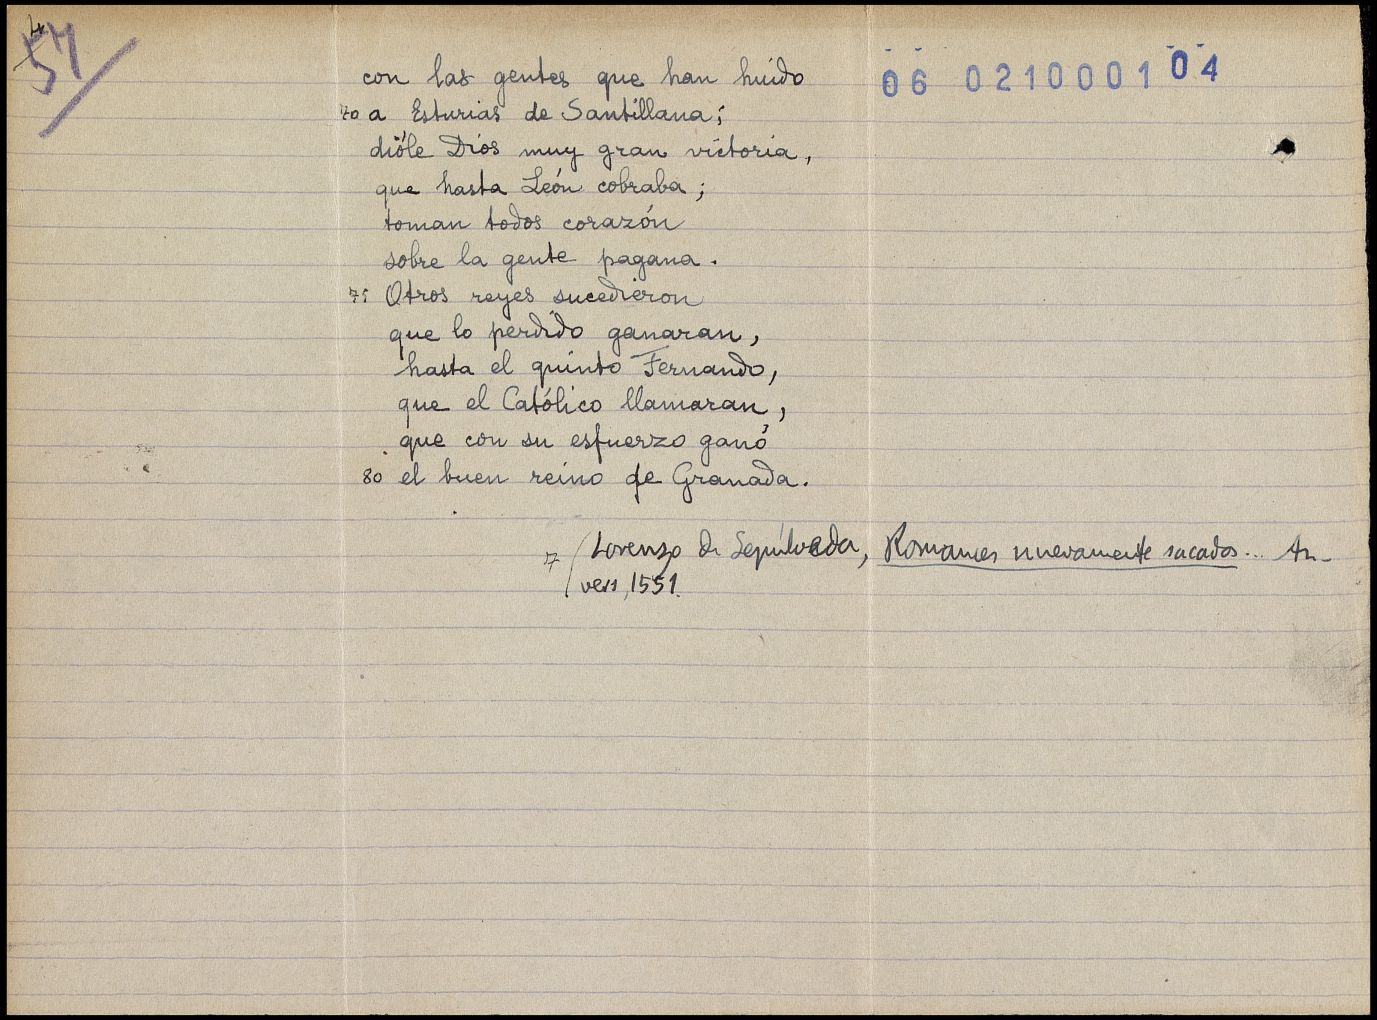 4
57
06 0210001 04
con las gentes que han huido
70 a Esturias de Santillana;
dióle Dios muy gran victoria,
que hasta León cobraba;
toman todos corazón
sobre la gente pagana.
75 Otros reyes sucedieron
que lo perdido ganaran,
hasta el quinto Fernando,
que el Católico llamaran,
que con su esfuerzo ganó
80 el buen reino de Granada.
Lorenzo de Sepúlveda, Romances nuevamente sacados... An-
vers, 1551.